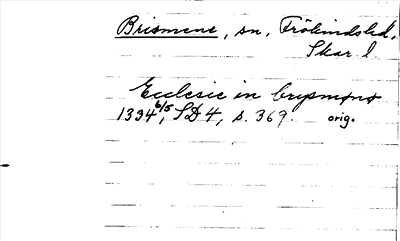 Brismene, sn, Frökindshd.
Skar. l
Ecclesie in brysmøno
1334 6/5, SD 4, s. 369. orig.